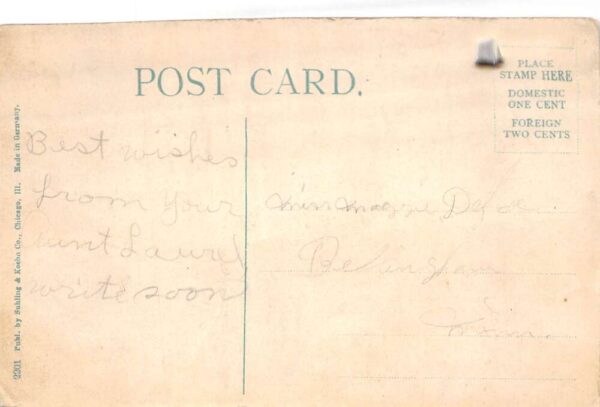 POST CARD.
PLACE
STAMP HERE
DOMESTIC
ONE CENT
FOREIGN
TWO CENTS
Best wishes
from your
aunt Laurel
write soon
Miss Maggie
2201 Publ. by Suhling & Koehn Co., Chicago, Ill. Made in Germany.